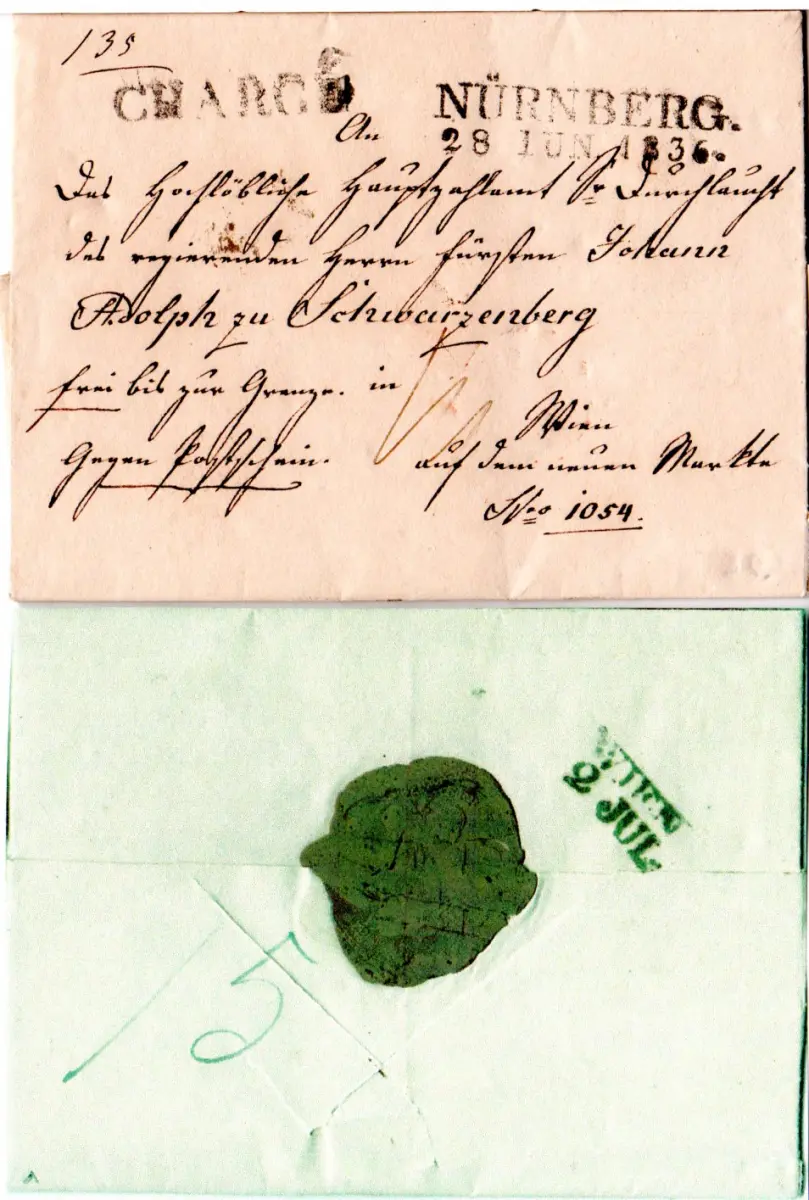 135
CHARGÉ
NÜRNBERG.
28 IUN. 1836.
An
Das Hochlöbliche Hauptzahlamt Sr Durchlaucht
des regierenden Herrn Fürsten Johann
Adolph zu Schwarzenberg
frei bis zur Grenze. in
Wien
Gegen Postschein.
auf dem neuen Markte
Nro 1054.
WIEN
2 JUL.
5